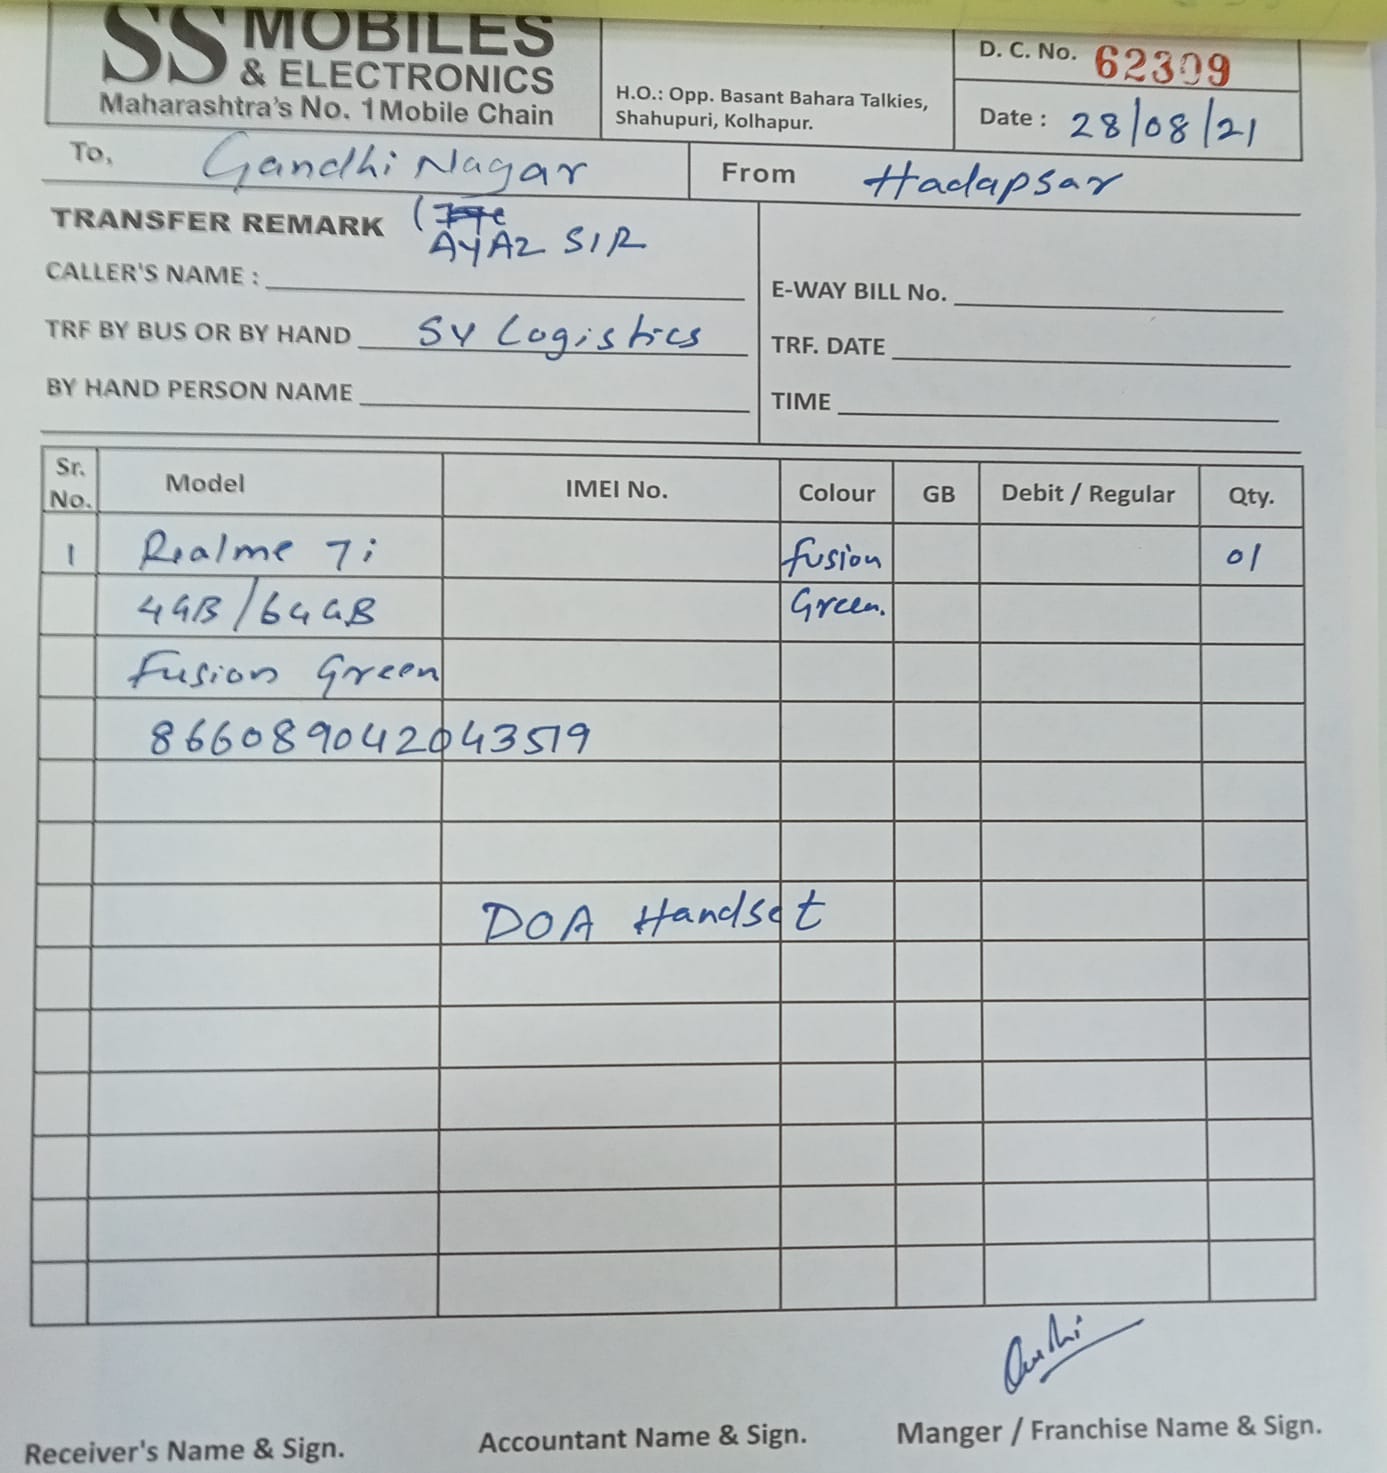 SS MOBILES
& ELECTRONICS
Maharashtra's No. 1 Mobile Chain
H.O.: Opp. Basant Bahara Talkies,
Shahupuri, Kolhapur.
D. C. No. 62309
Date : 28/08/21
To, Gandhi Nagar
From Hadapsar
TRANSFER REMARK (
AYAZ SIR
CALLER'S NAME :
E-WAY BILL No.
TRF BY BUS OR BY HAND SY Logistics
TRF. DATE
BY HAND PERSON NAME
TIME
Sr. No. Model IMEI No. Colour GB Debit / Regular Qty.
1 Realme 7i fusion 01
4GB/64GB Green.
Fusion Green
866089042043519
DOA Handset
Receiver's Name & Sign. Accountant Name & Sign. Manger / Franchise Name & Sign.